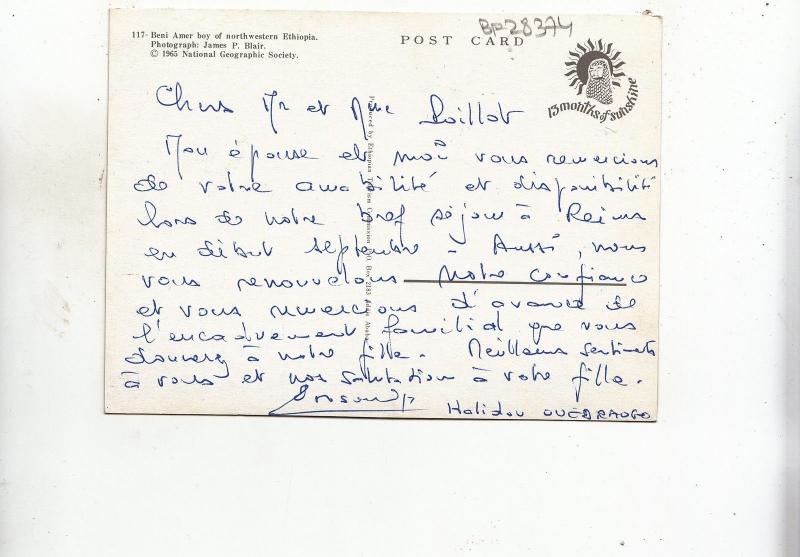 117- Beni Amer boy of northwestern Ethiopia.
Photograph: James P. Blair.
© 1965 National Geographic Society.
POST CARD
BP28374
13 months of sunshine
Chers Mr et Mme
Mon épouse et moi vous remercions
de votre amabilité et disponibilité
lors de notre bref séjour à Reims
en début septembre - Aussi, nous
vous renouvelons notre confiance
et vous remercions d'avance de
l'encadrement familial que vous
donnerez à notre fille. Meilleurs sentiments
à vous et nos salutation à votre fille.
Halidou OUEDRAOGO
Produced by Ethiopian Tourism Commission P.O. Box 2183 Addis Ababa